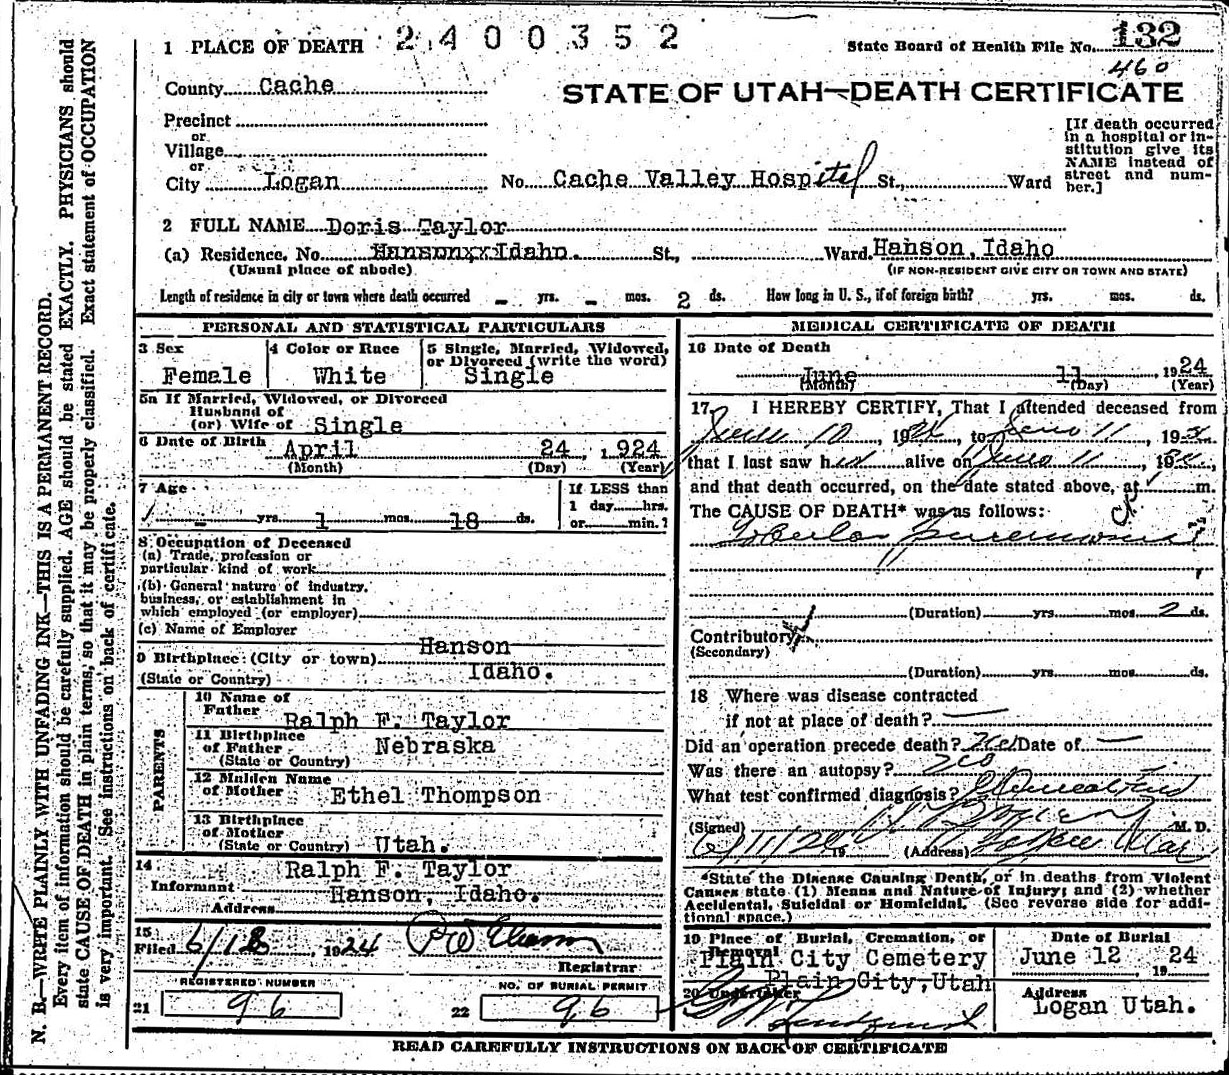 1 PLACE OF DEATH 2400352 State Board of Health File No. 132
460
County Cache
STATE OF UTAH—DEATH CERTIFICATE
Precinct
or
Village
or
City Logan No. Cache Valley Hospital St., Ward
[If death occurred
in a hospital or in-
stitution give its
NAME instead of
street and num-
ber.]
2 FULL NAME Doris Taylor
(a) Residence. No. Hanson,xxIdaho. St., Ward. Hanson, Idaho
(Usual place of abode) (IF NON-RESIDENT GIVE CITY OR TOWN AND STATE)
Length of residence in city or town where death occurred - yrs. - mos. 2 ds. How long in U. S., if of foreign birth? yrs. mos. ds.
PERSONAL AND STATISTICAL PARTICULARS
3 Sex
Female
4 Color or Race
White
5 Single, Married, Widowed,
or Divorced (write the word)
Single
5a If Married, Widowed, or Divorced
Husband of
(or) Wife of Single
6 Date of Birth April 24, 1924
(Month) (Day) (Year)
7 Age
- yrs. 1 mos. 18 ds.
If LESS than
1 day hrs.
or min.?
8 Occupation of Deceased
(a) Trade, profession or
particular kind of work
(b) General nature of industry,
business, or establishment in
which employed (or employer)
(c) Name of Employer
9 Birthplace (City or town) Hanson
(State or Country) Idaho.
PARENTS
10 Name of
Father Ralph F. Taylor
11 Birthplace
of Father Nebraska
(State or Country)
12 Maiden Name
of Mother Ethel Thompson
13 Birthplace
of Mother
(State or Country) Utah.
14 Ralph F. Taylor
Informant Hanson, Idaho.
Address
15
Filed 6/18, 1924
Registrar
REGISTERED NUMBER
21 96
NO. OF BURIAL PERMIT
22 96
MEDICAL CERTIFICATE OF DEATH
16 Date of Death
June 11, 1924
(Month) (Day) (Year)
17 I HEREBY CERTIFY, That I attended deceased from
June 10, 1924, to June 11, 192
that I last saw h alive on June 11, 19
and that death occurred, on the date stated above, at m.
The CAUSE OF DEATH* was as follows:
Lobular Pneumonia
(Duration) yrs. mos. 2 ds.
Contributory
(Secondary)
(Duration) yrs. mos. ds.
18 Where was disease contracted
if not at place of death? —
Did an operation precede death? No Date of —
Was there an autopsy? No
What test confirmed diagnosis?
(Signed) M. D.
6/11/24 19 (Address)
*State the Disease Causing Death, or in deaths from Violent
Causes state (1) Means and Nature of Injury; and (2) whether
Accidental, Suicidal or Homicidal. (See reverse side for addi-
tional space.)
19 Place of Burial, Cremation, or
Removal
Plain City Cemetery
Plain City, Utah
Date of Burial
June 12, 1924
20 Undertaker
Lindquist
Address
Logan Utah.
READ CAREFULLY INSTRUCTIONS ON BACK OF CERTIFICATE
N. B.—WRITE PLAINLY WITH UNFADING INK—THIS IS A PERMANENT RECORD.
Every item of information should be carefully supplied. AGE should be stated EXACTLY. PHYSICIANS should
state CAUSE OF DEATH in plain terms, so that it may be properly classified. Exact statement of OCCUPATION
is very important. (See instructions on back of certificate.